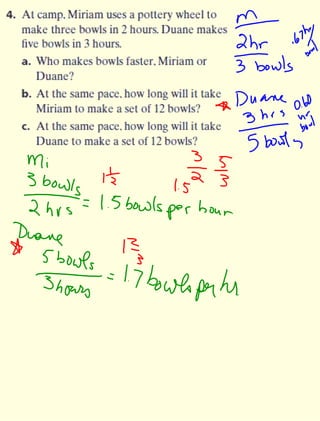 4. At camp, Miriam uses a pottery wheel to
make three bowls in 2 hours. Duane makes
five bowls in 3 hours.
a. Who makes bowls faster, Miriam or
Duane?
b. At the same pace, how long will it take
Miriam to make a set of 12 bowls?
c. At the same pace, how long will it take
Duane to make a set of 12 bowls?
m
2hr
3 bowls
.67 hr
bowl
Duane
3 hrs
5 bowls
hr
bowl
Mi
3 bowls
2 hrs
= 1.5 bowls per hour
1 1/2
3
2
1.5
5
3
Duane
5 bowls
3 hours
= 1.7 bowls per hr
1 2/3